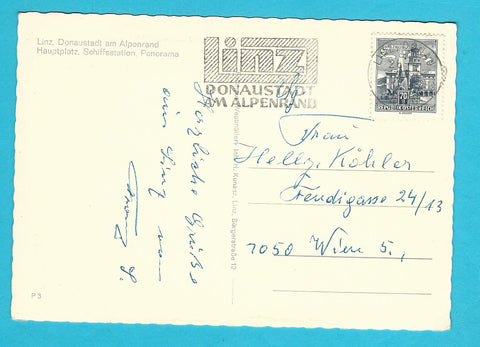 Linz, Donaustadt am Alpenrand
Hauptplatz, Schiffestation, Panorama
Linz
DONAUSTADT
AM ALPENRAND
70
Herzliche Grüße
aus Linz von
Frau
Helly Köhler
Fendigasse 24/13
1050 Wien 5.,
Linz, Bürgerstraße 12
P 3